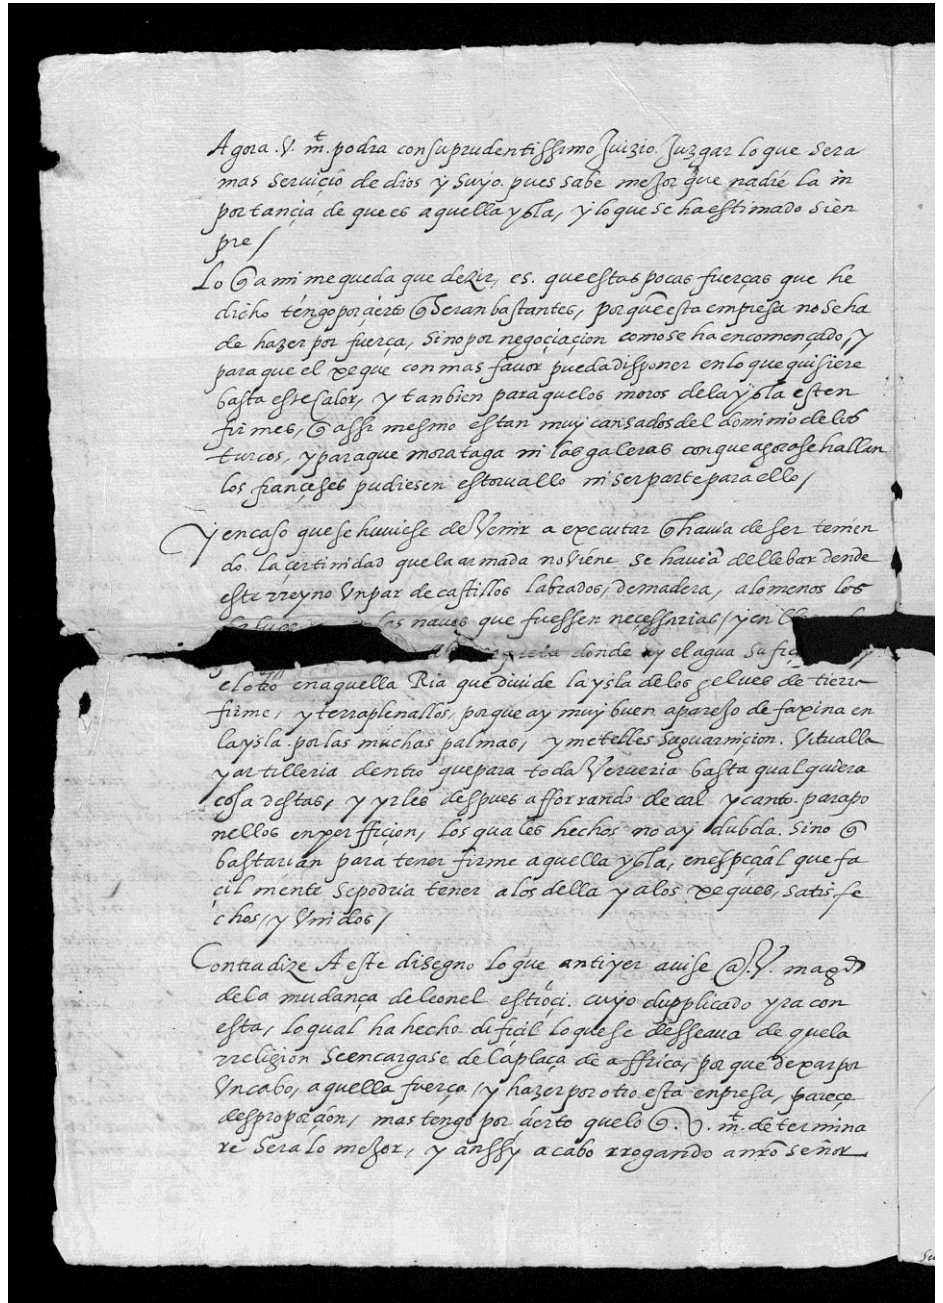 Agora .V. mt. podra con su prudentissimo Juizio Juzgar lo que sera
mas serviçio de dios y suyo. pues sabe mejor que nadie la in
portançia de que es aquella ysla, y lo que se ha estimado sien
pre /
Lo q a mi me queda que dezir, es. que estas pocas fuerças que he
dicho tengo por çierto q seran bastantes, porque esta empresa no se ha
de hazer por fuerça, sino por negoçiaçion como se ha encomençado, y
para que el xeque con mas favor pueda disponer en lo que quisiere
basta este calor, y tanbien para que los moros de la ysla esten
firmes, q assi mesmo estan muy cansados del dominio de los
turcos, y para que morataga ni las galeras con que agora se hallan
los françeses pudiesen estorvallo ni ser parte para ello /
y en caso que se huviese de Venir a executar q havia de ser tenien
do la çertinidad que la armada no viene se havia de llebar dende
este rreyno Un par de castillos labrados, de madera, a lo menos los
naves que fuessen necessarias / y en
donde ay el agua
el otro en aquella Ria que divide la ysla de los gelves de tierra
firme, y terraplenallos, porque ay muy buen aparejo de faxina en
la ysla por las muchas palmas, y metelles su guarnicion. Vitualla
y artilleria dentro que para toda Berveria basta qualquiera
cosa destas, y yrles despues afforrando de cal y canto. para po
nellos en perffiçion, los quales hechos no ay dubda. sino q
bastarian para tener firme aquella ysla, en espeçial que fa
cilmente se podria tener a los della y a los xeques, satisfe
chos, y Unidos /
Contradize A este disegno lo que antiyer avise @ .V. magd
de la mudança de leonel estroçi. cuyo dupplicado yra con
esta, lo qual ha hecho dificil lo que se desseava de que la
rreligion se encargase de la plaça de affrica, por que dexar por
Un cabo, aquella fuerça, y hazer por otro esta enpresa, pareçe
desproporçion, mas tengo por çierto que lo q. V. mt. determina
re sera lo mejor, y anssy acabo rrogando a nro señor